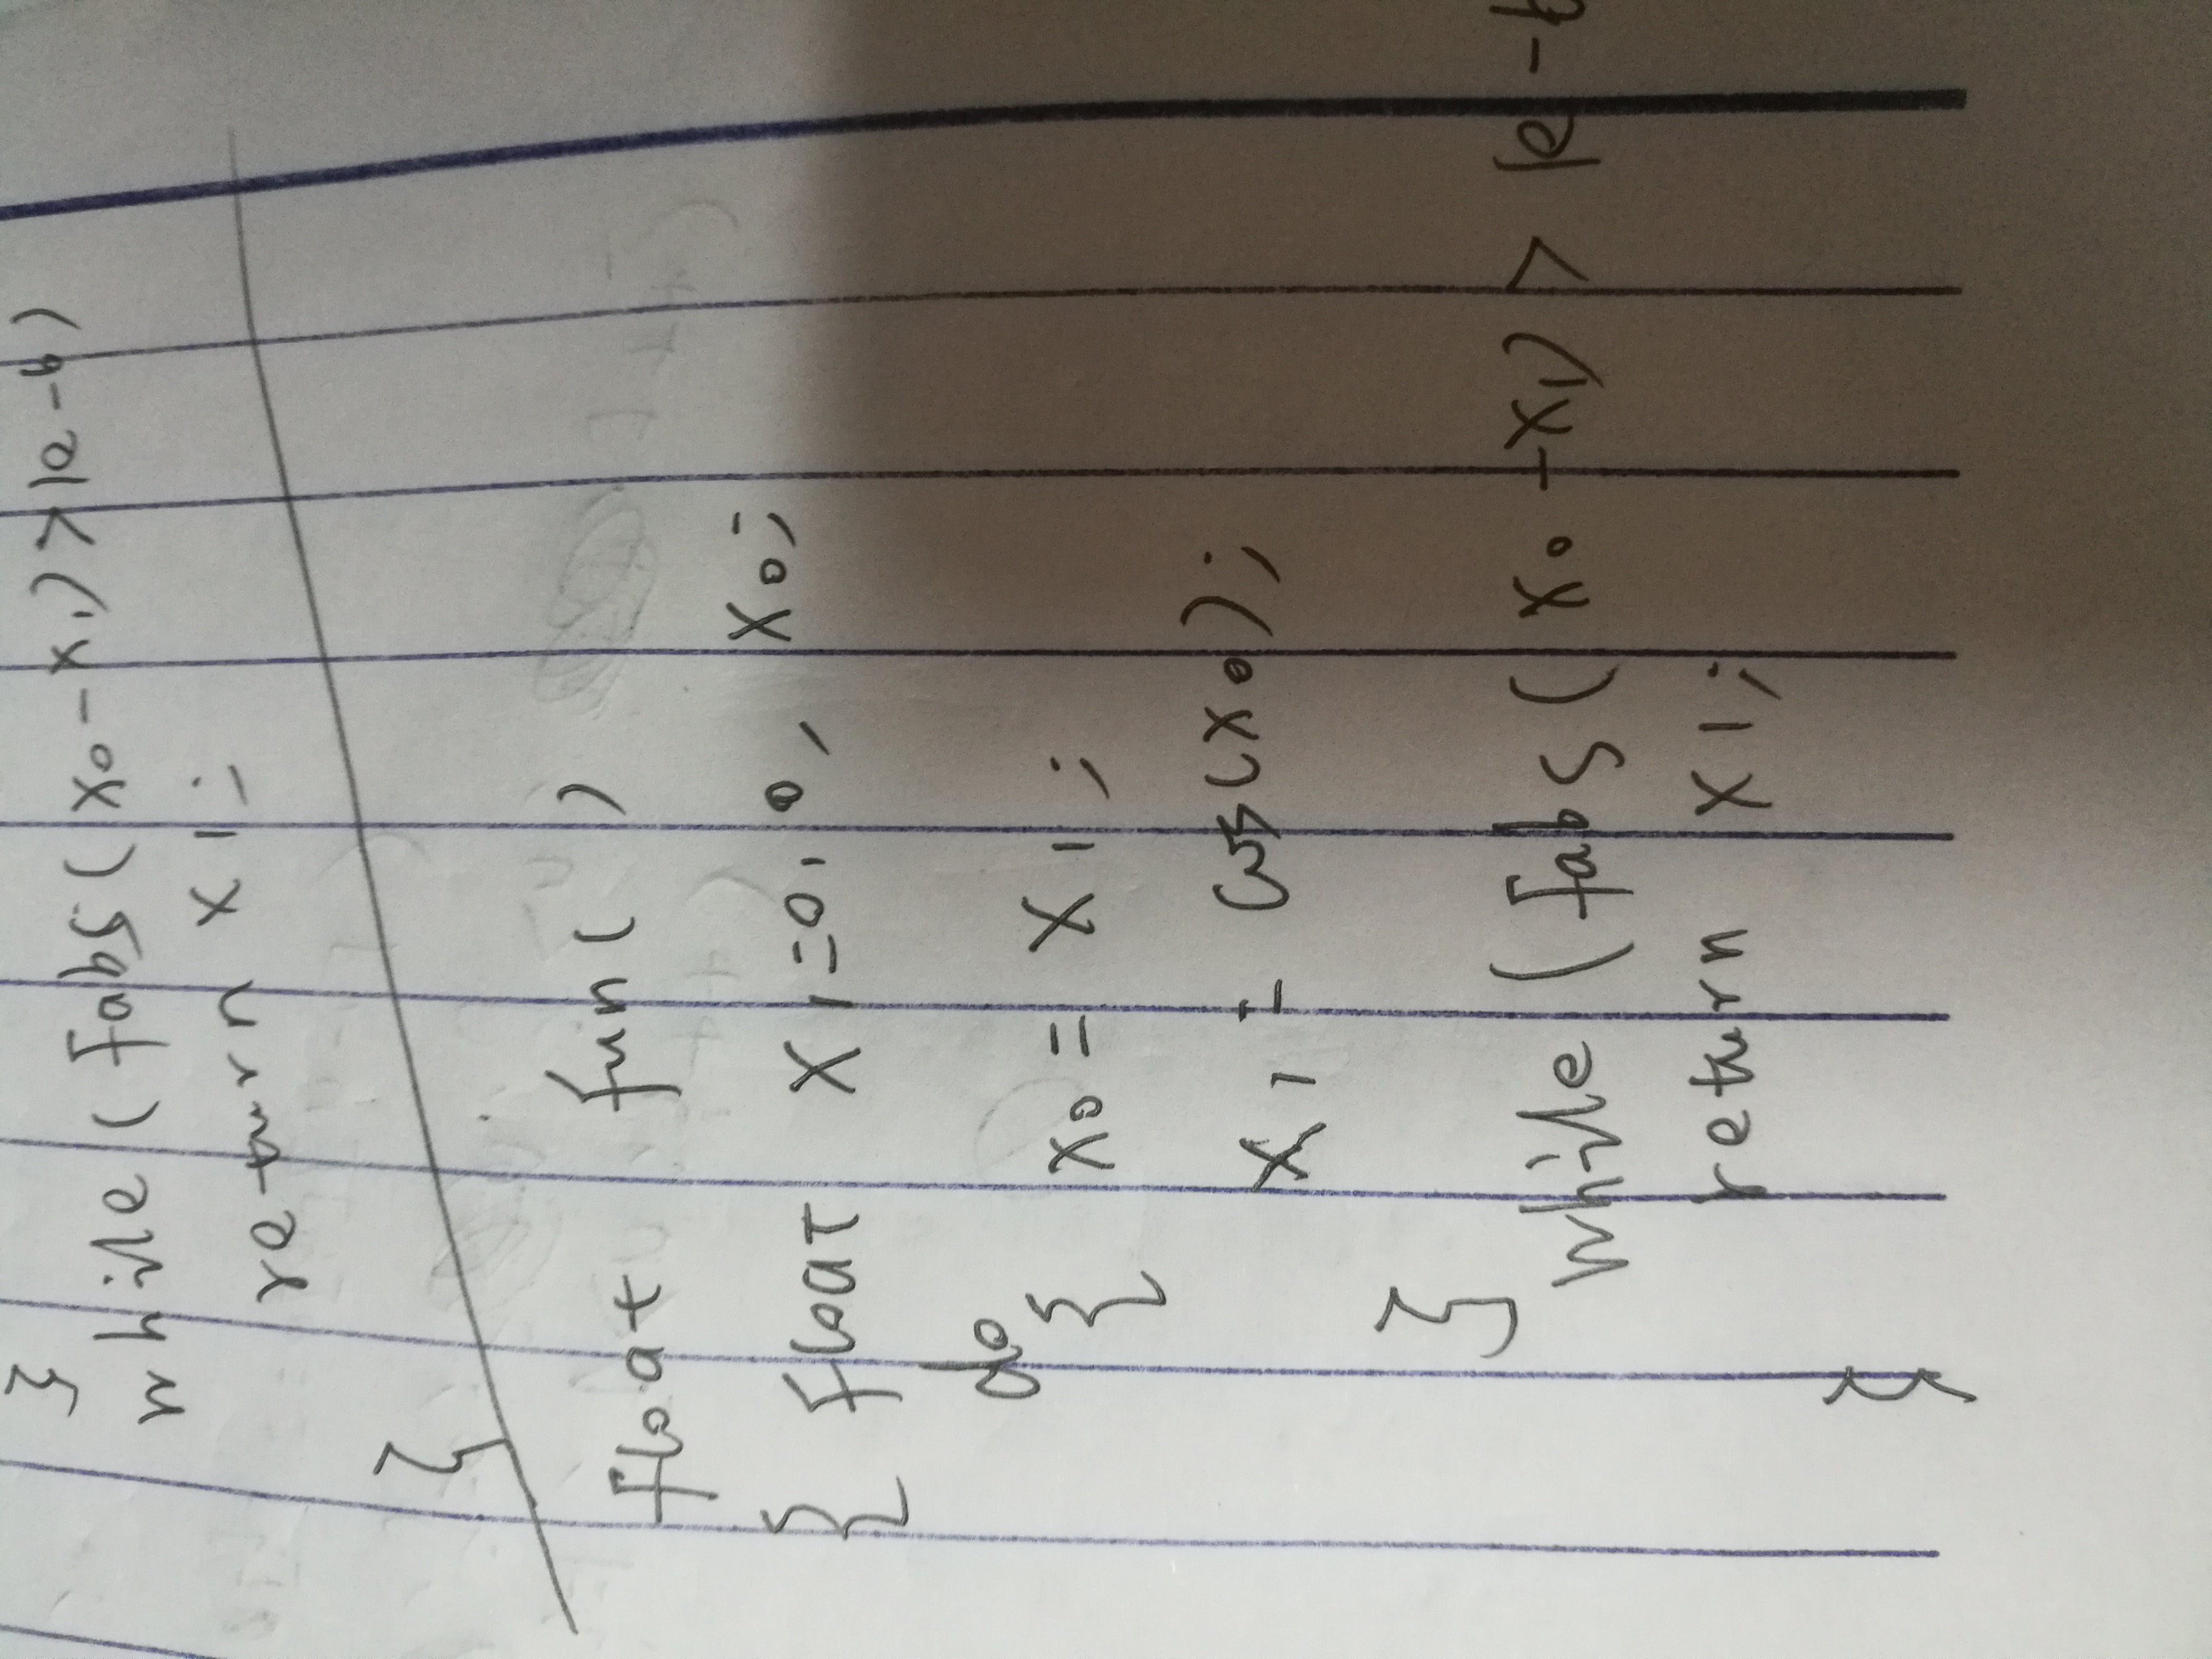 }
while (fabs(x0-x1)>1e-6)
return x1;
}
float fun( )
{ float x1=0.0, x0;
do
{ x0= x1;
x1= cos(x0);
}
while (fabs(x0-x1)>1e-
return x1;
}